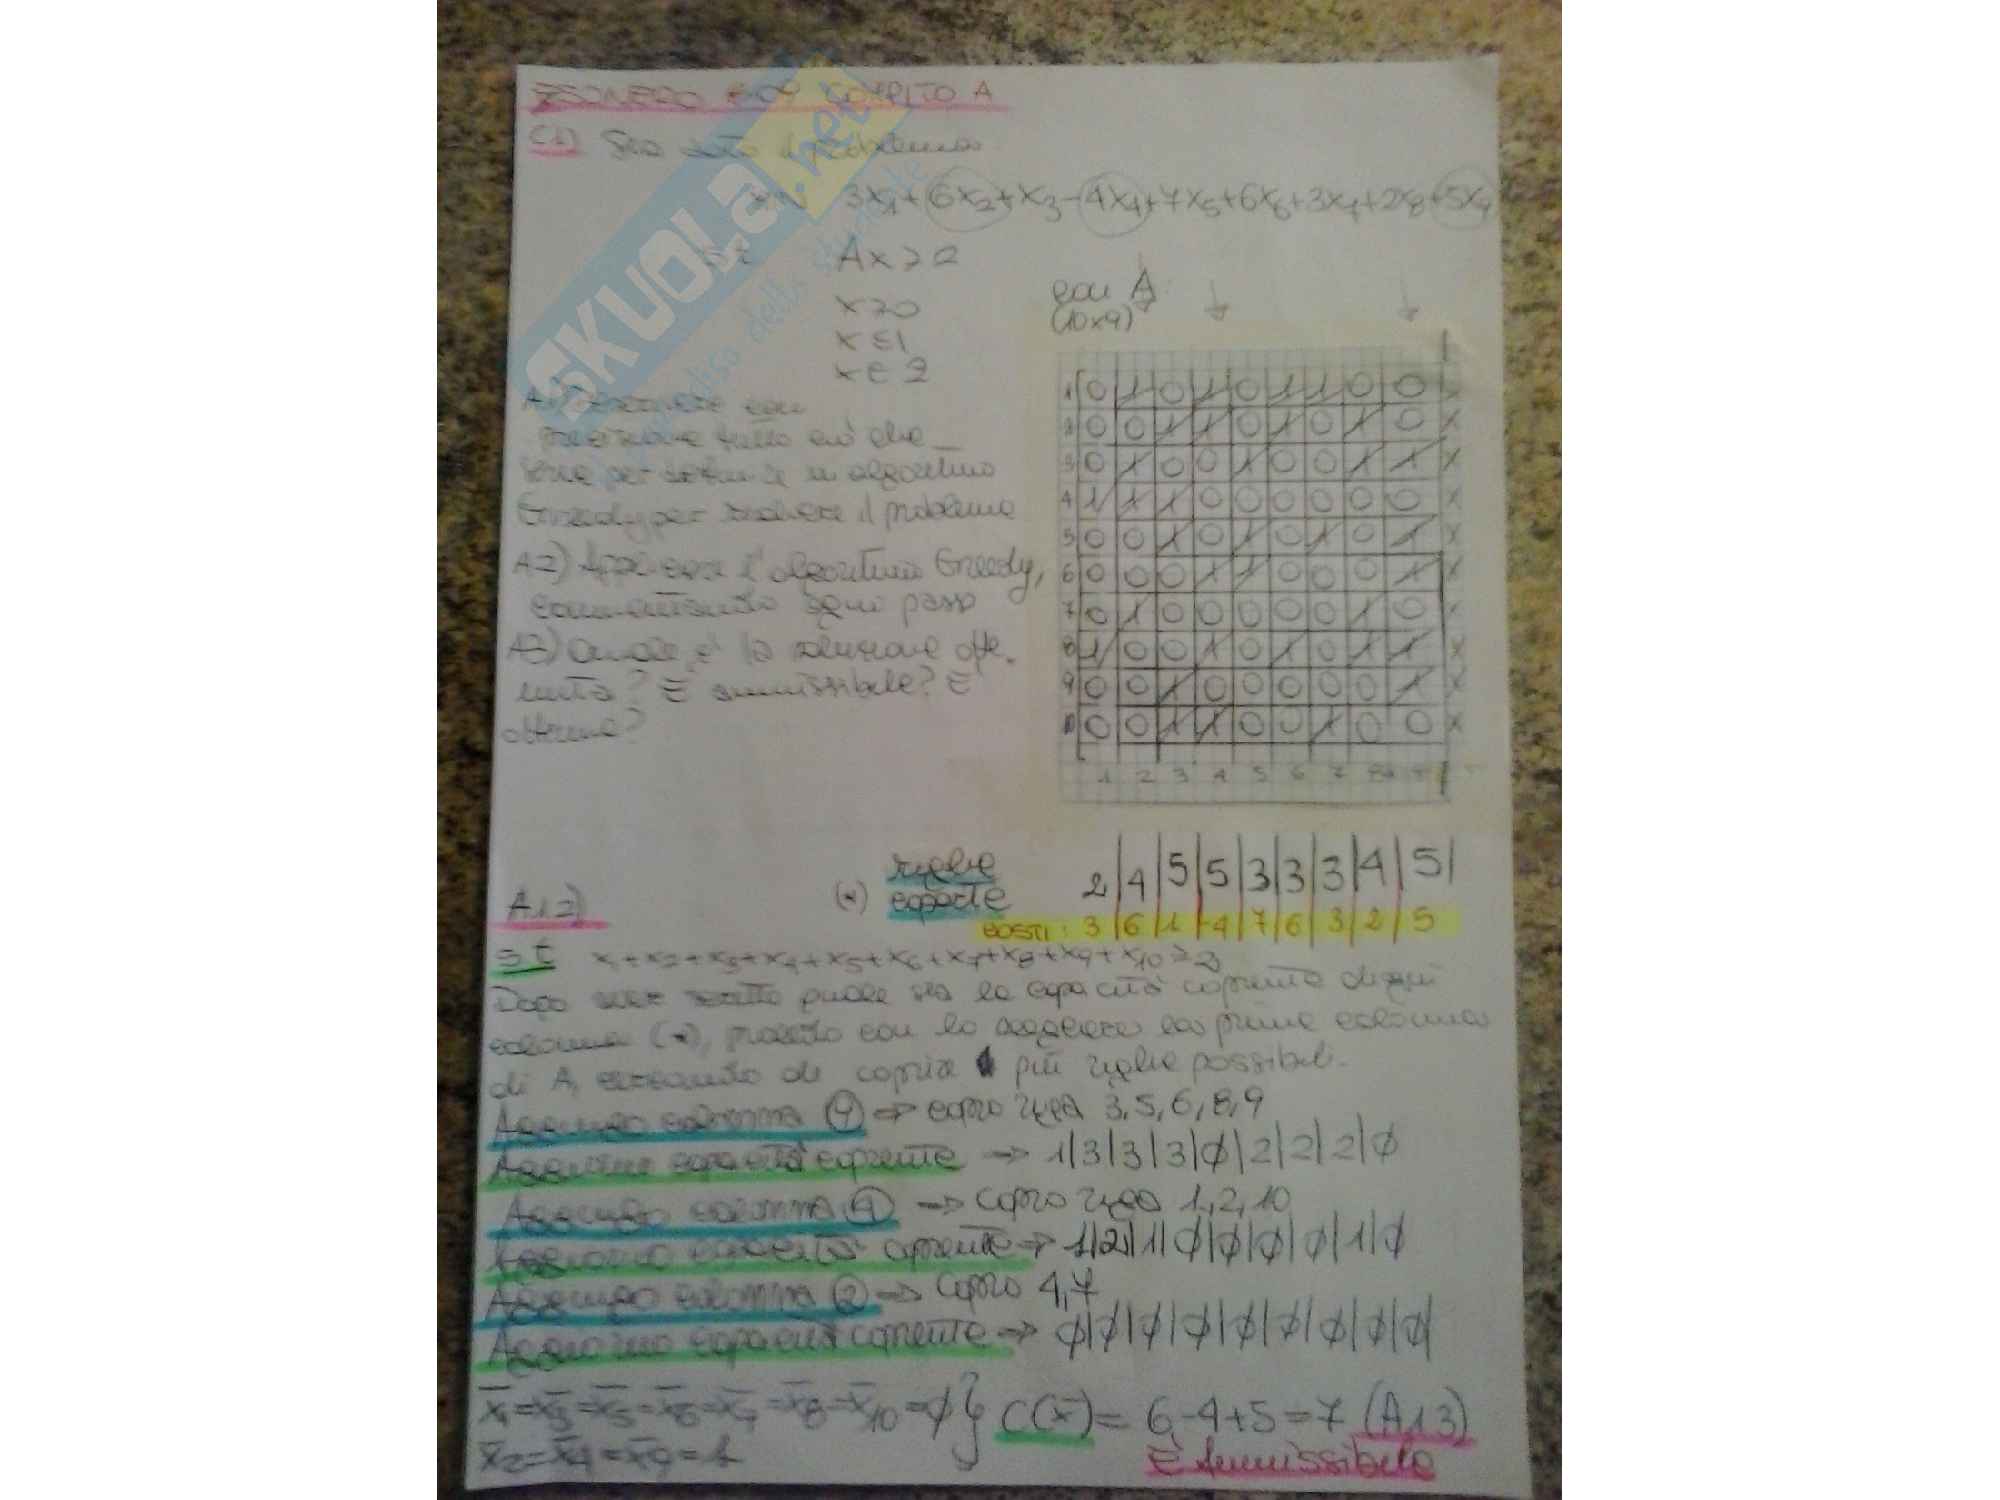 ESONERO 6-09 COMPITO A
C1) Sia dato il problema
MIN 3x1+6x2+x3-4x4+7x5+6x6+3x7+2x8+5x9
s.t. Ax ≥
x≥0
x≤1
x∈Z
con A:
(10x9)
1 0 1 0 1 0 1 1 0 0
2 0 0 1 1 0 1 0 1 0 x
3 0 1 0 0 1 0 0 1 1 x
4 1 1 1 0 0 0 0 0 0 x
5 0 0 1 0 1 0 1 0 1 x
6 0 0 0 1 1 0 0 0 1 x
7 0 1 0 0 0 0 0 1 0
8 1 0 0 1 0 1 0 1 1 x
9 0 0 1 0 0 0 0 0 1 x
10 0 0 1 1 0 0 1 0 0 x
1 2 3 4 5 6 7 8
con
precisione tutto ciò che
serve per definire un algoritmo
Greedy per risolvere il problema
A.2) Applicare l'algoritmo Greedy,
commentando ogni passo
A3) Quale è la soluzione otte-
nuta? È ammissibile? È
ottima?
righe
coperte
(*) 2|4|5|5|3|3|3|4|5|
COSTI: 3|6|1|-4|7|6|3|2|5
A1.2)
s.t x1+x2+x3+x4+x5+x6+x7+x8+x9+x10≥
Dopo aver scritto quale sia la capacità coprente di ogni
colonna (*), procedo con lo scegliere la prima colonna
di A, cercando di coprire più righe possibili.
Aggiungo colonna 9 => copro riga 3, 5, 6, 8, 9
Aggiorno capacità coprente => 1|3|3|3|∅|2|2|2|∅
Aggiungo colonna 4 => copro riga 1, 2, 10
Aggiorno capacità coprente => 1|2|1|∅|∅|∅|∅|1|∅
Aggiungo colonna 2 => copro 4, 7
Aggiorno capacità coprente => ∅|∅|∅|∅|∅|∅|∅|∅|∅|
x̄1=x̄3=x̄5=x̄6=x̄7=x̄8=x̄10=∅ } C(x̄) = 6-4+5=7 (A13)
x̄2=x̄4=x̄9=1
È Ammissibile
SKUOLA.net